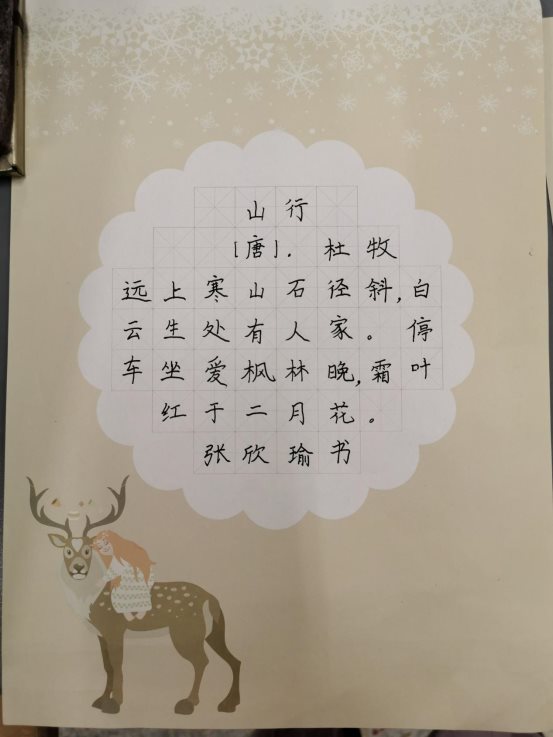 山行
[唐]. 杜牧
远上寒山石径斜,白
云生处有人家。停
车坐爱枫林晚,霜叶
红于二月花。
张欣瑜书